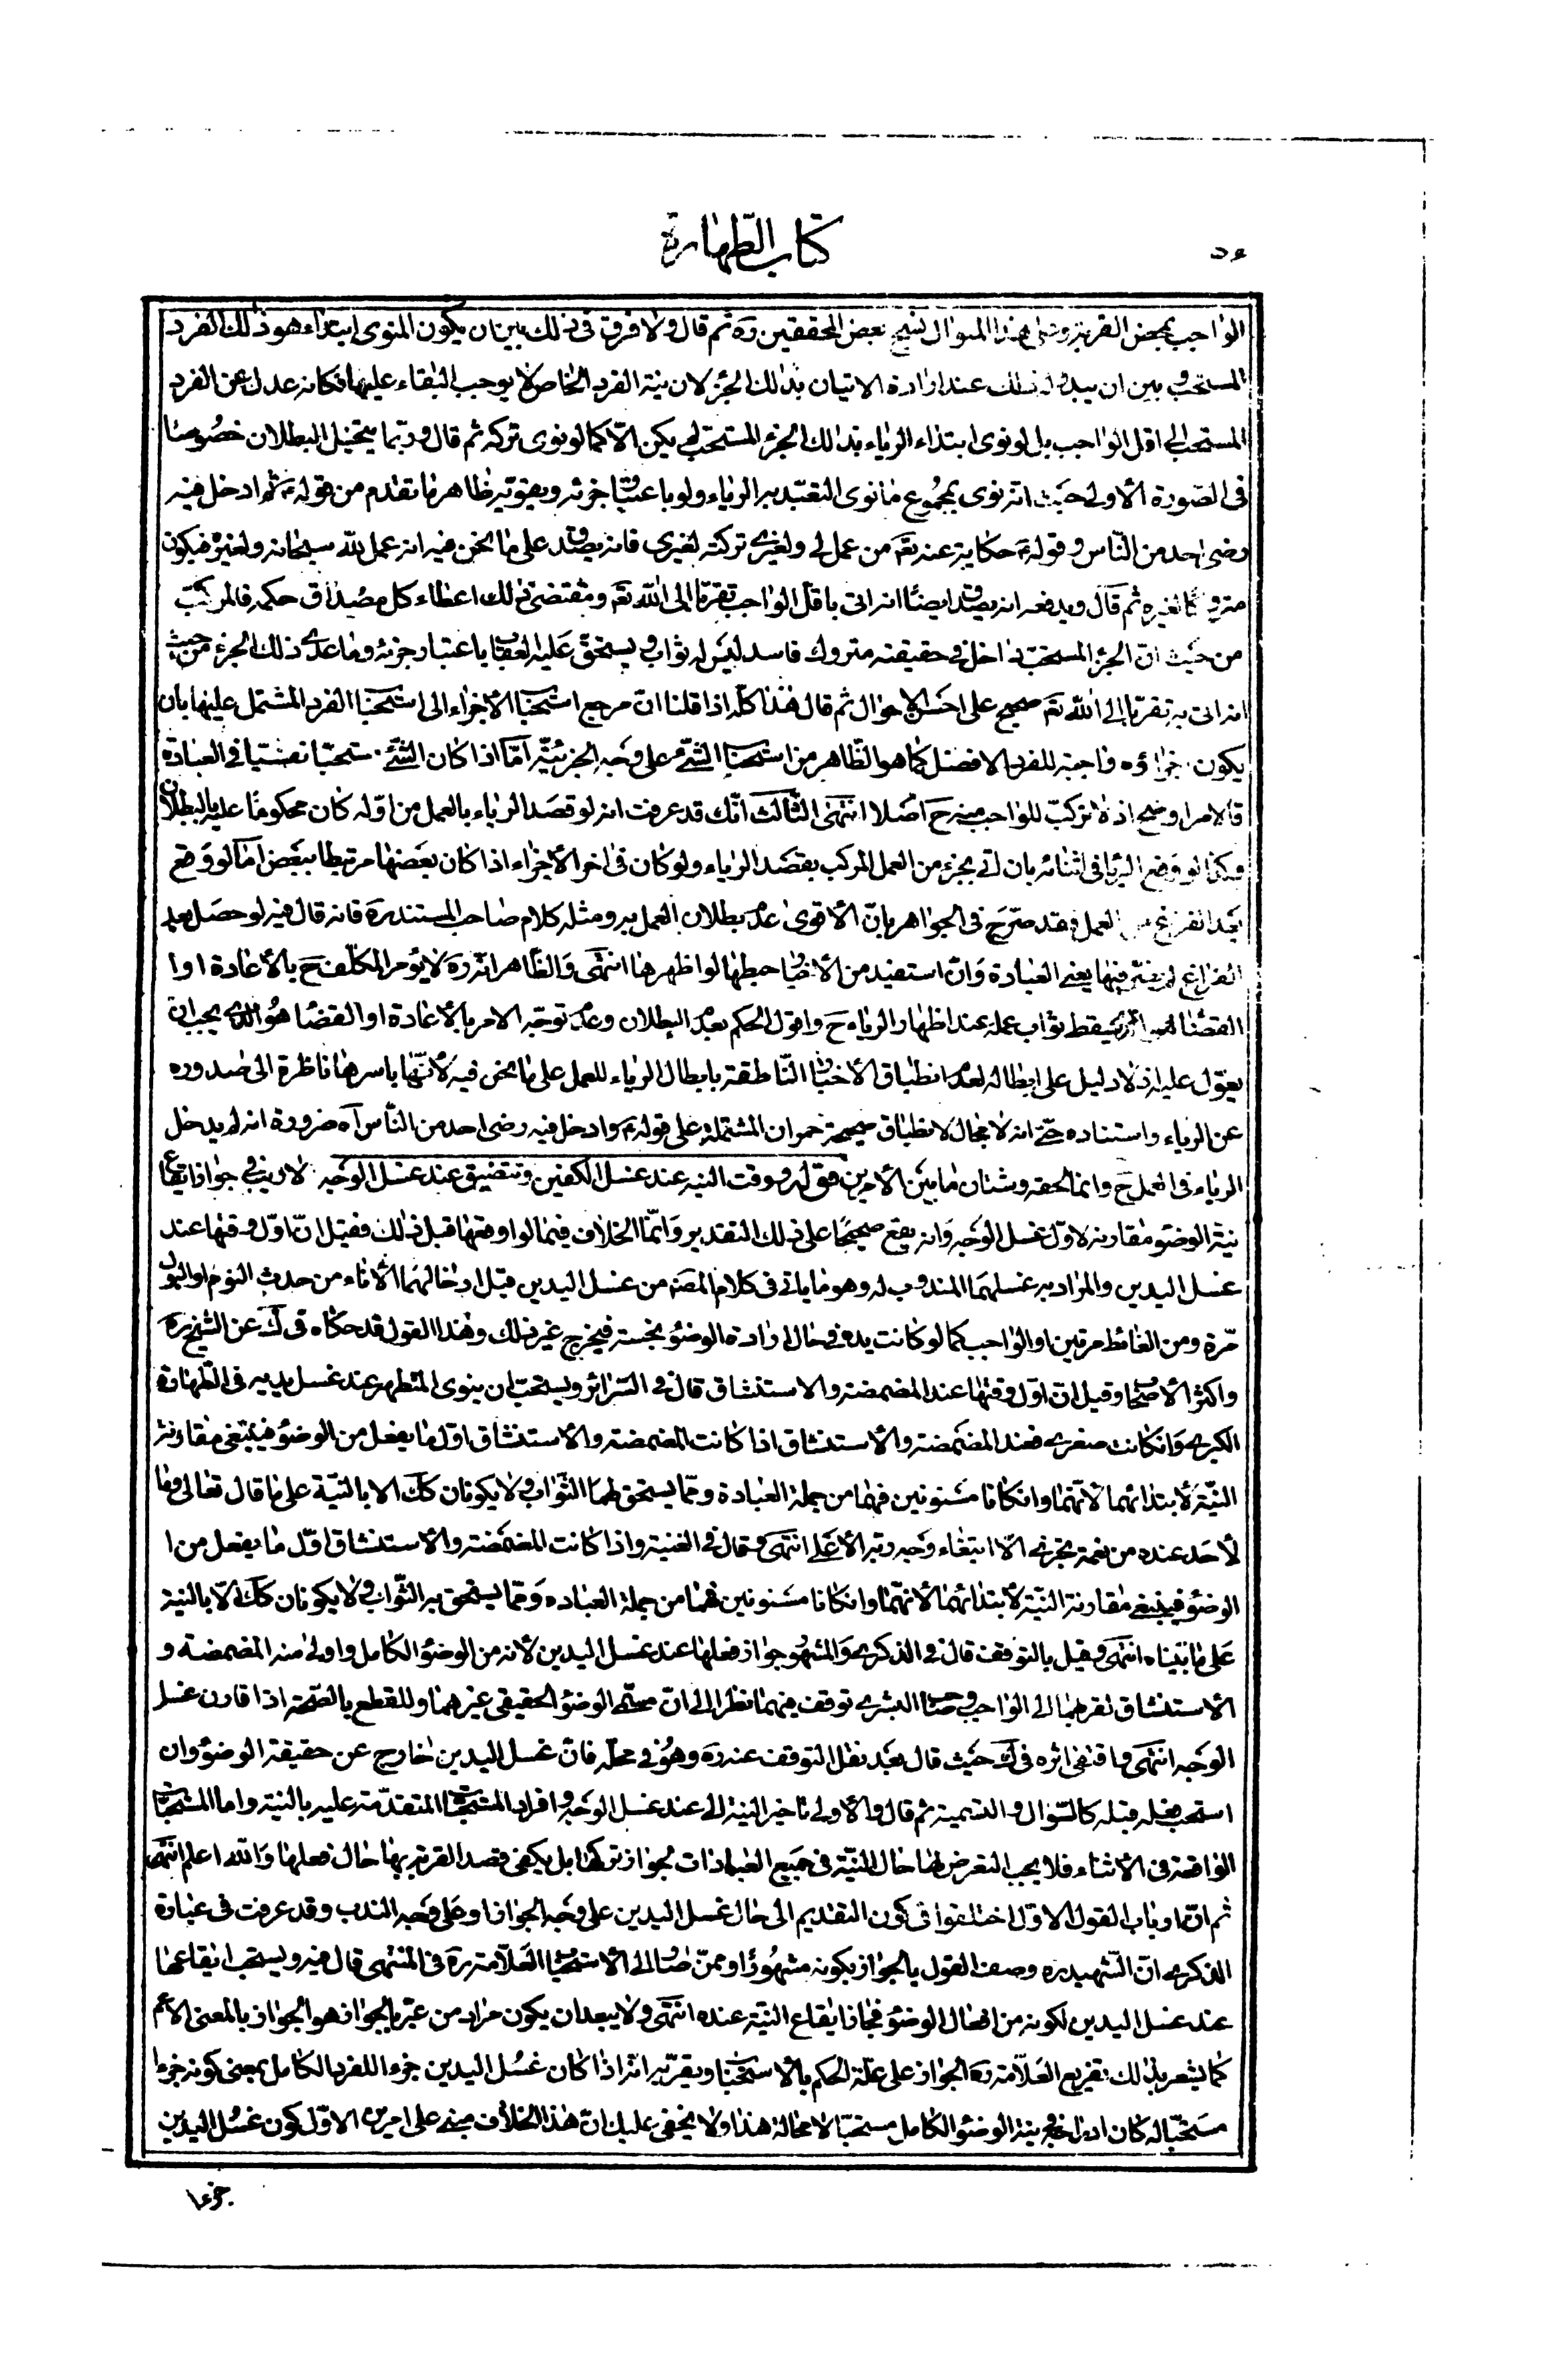 كتاب الطهارة
الواجب بمحض القربة وعلى هذا المنوال نسج بعض المحققين ره ثم قال ولا فرق فى ذلك بين ان يكون المنوى ابتداء هو ذلك الفرد
المستحب وبين ان يبدو له ذلك عند ارادة الاتيان بذلك الجزء لان نية الفرد الخاص لا يوجب البقاء عليها فكانه عدل عن الفرد
المستحب الى اقل الواجب بل لو نوى ابتداء الرياء بذلك الجزء المستحب لم يكن الا كما لو نوى تركه ثم قال وربما يتخيل البطلان خصوصا
فى الصورة الأولى حيث انه نوى بمجموع ما نوى التعبد به الرياء ولو باعتبار جزئه ويقويه ظاهر ما تقدم من قوله ع ثم ادخل فيه
رضى احد من الناس وقوله ع حكاية عنه تعم من عمل لى ولغيرى تركته لغيرى فانه يصدق على ما نحن فيه انه عمل لله سبحانه ولغيره فيكون
متروكا لغيره ثم قال ويدفعه انه يصدق ايضا انه اتى باقل الواجب تقربا الى الله تعم ومقتضى ذلك اعطاء كل مصداق حكمه فالمركب
من حيث ان الجزء المستحب داخل فى حقيقته متروك فاسد ليس له ثواب ويستحق عليه العقاب باعتبار جزئه وما عدى ذلك الجزء من حيث
انه اتى به تقربا الى الله تعم صحيح على احسن الاحوال ثم قال هذا كله اذا قلنا ان مرجع استحباب الأجزاء الى استحباب الفرد المشتمل عليها بان
يكون اجزاؤه واجبة للفرد الافضل كما هو الظاهر من استحباب الشئ على وجه الجزئية امّا اذا كان الشئ مستحبا نفسيا فى العبادة
فالامر اوضح اذ لا تركب للواجب منه ح اصلا انتهى الثالث انك قد عرفت انه لو قصد الرياء بالعمل من اوله كان محكوما عليه بالبطلان
وكذا لو وقع الريا فى اثنائه بان اتى بجزء من العمل المركب بقصد الرياء ولو كان فى اخر الأجزاء اذا كان بعضها مرتبطا ببعض امّا لو وقع
بعد الفراغ من العمل فقد صرح فى الجواهر بان الأقوى عدم بطلان العمل به ومثله كلام صاحب المستند ره فانه قال فيه لو حصل بعد
الفراغ لم يضر فيها يعنى العبادة وان استفيد من الأخبار حبطها لو اظهرها انتهى والظاهر انه ره لا يؤمر المكلف ح بالأعادة او ا
القضاء يسقط ثواب عمله عند اظهار الرياء ح واقول الحكم بعدم البطلان وعدم توجه الامر بالأعادة او القضا هو الذى يجب ان
يعول عليه اذ لا دليل على ابطاله لعدم انطباق الأخبار الناطقة بابطال الرياء للعمل على ما نحن فيه لأنها باسرها ناظرة الى صدوره
عن الرياء واستناده حتى انه لا مجال لانطباق صحيحة حمران المشتملة على قوله ع وادخل فيه رضى احد من الناس آه ضرورة انه لم يدخل
الرياء فى العمل ح وانما الحقه وشتان ما بين الأمرين قوله ووقت النية عند غسل الكفين وتتضيق عند غسل الوجه لا ريب فى جواز ايقاع
نية الوضوء مقارنة لاول غسل الوجه وانه يقع صحيحا على ذلك التقدير وانما الخلاف فيما لو اوقعها قبل ذلك فقيل ان اول وقتها عند
غسل اليدين والمراد به غسلهما المندوب له وهو ما ياتى فى كلام المصنف من غسل اليدين قبل ادخالهما الأناء من حدث النوم او البول
مرة ومن الغائط مرتين او الواجب كما لو كانت يده فى حال ارادة الوضوء نجسة فيخرج غير ذلك وهذا القول قد حكاه فى ك عن الشيخ ره
واكثر الأصحاب وقيل ان اول وقتها عند المضمضة والاستنشاق قال فى السرائر ويستحب ان ينوى المتطهر عند غسل يديه فى الطهارة
الكبرى وان كانت صغرى فعند المضمضة والأستنشاق اذا كانت المضمضة والأستنشاق اول ما يفعل من الوضوء فينبغى مقارنة
النية لأبتدائهما لانهما وان كانا مسنونين فهما من جملة العبادة ومما يستحق بهما الثواب ولا يكونان كك الا بالنية على ما قال تعالى وما
لأحد عنده من نعمة تجزى الا ابتغاء وجه ربه الأعلى انتهى وقال فى الغنية واذا كانت المضمضة والأستنشاق اول ما يفعل من ا
الوضوء فينبغى مقارنة النية لأبتدائهما لأنهما وان كانا مسنونين فهما من جملة العباده ومما يستحق به الثواب ولا يكونان كك الا بالنية
على ما بيناه انتهى وقيل بالتوقف قال فى الذكرى والمشهور جواز فعلها عند غسل اليدين لانه من الوضوء الكامل واولى منه المضمضة و
الأستنشاق لقربهما الى الواجب وصاحب البشرى توقف فيهما نظرا الى ان مسمى الوضوء الحقيقى غيرهما وللقطع بالصحة اذا قارن غسل
الوجه انتهى واقتفى اثره فى ك حيث قال بعد نقل التوقف عنه ره وهو فى محله فان غسل اليدين خارج عن حقيقة الوضوء وان
استحب فعله قبله كالسواك والتسمية ثم قال والأولى تاخير النية الى عند غسل الوجه وافراد المستحبات المتقدمة عليه بالنية واما المستحبات
الواقعة فى الأثناء فلا يجب التعرض لها حال النية فى جميع العبادات لجواز تركها بل يكفى قصد القربة بها حال فعلها والله اعلم انتهى
ثم ان ارباب القول الاول اختلفوا فى كون التقديم الى حال غسل اليدين على وجه الجواز او على وجه الندب وقد عرفت فى عبارة
الذكرى ان الشهيد ره وصف القول بالجواز بكونه مشهورا وممن صار الى الأستحباب العلامة ره فى المنتهى قال فيه ويستحب ايقاعها
عند غسل اليدين لكونه من افعال الوضوء فجاز ايقاع النية عنده انتهى ولا يبعد ان يكون مراد من عبر بالجواز هو الجواز بالمعنى الأعم
كما يشعر بذلك تفريع العلامة ره الجواز على علة الحكم بالأستحباب وتقريبه انه اذا كان غسل اليدين جزءا للفرد الكامل بمعنى كونه جزءا
مستحبا له كان ادراجه فى نية الوضوء الكامل مستحبا لا محالة هذا ولا يخفى عليك ان هذا الخلاف مبنى على امرين الاول كون غسل اليدين
جزءا